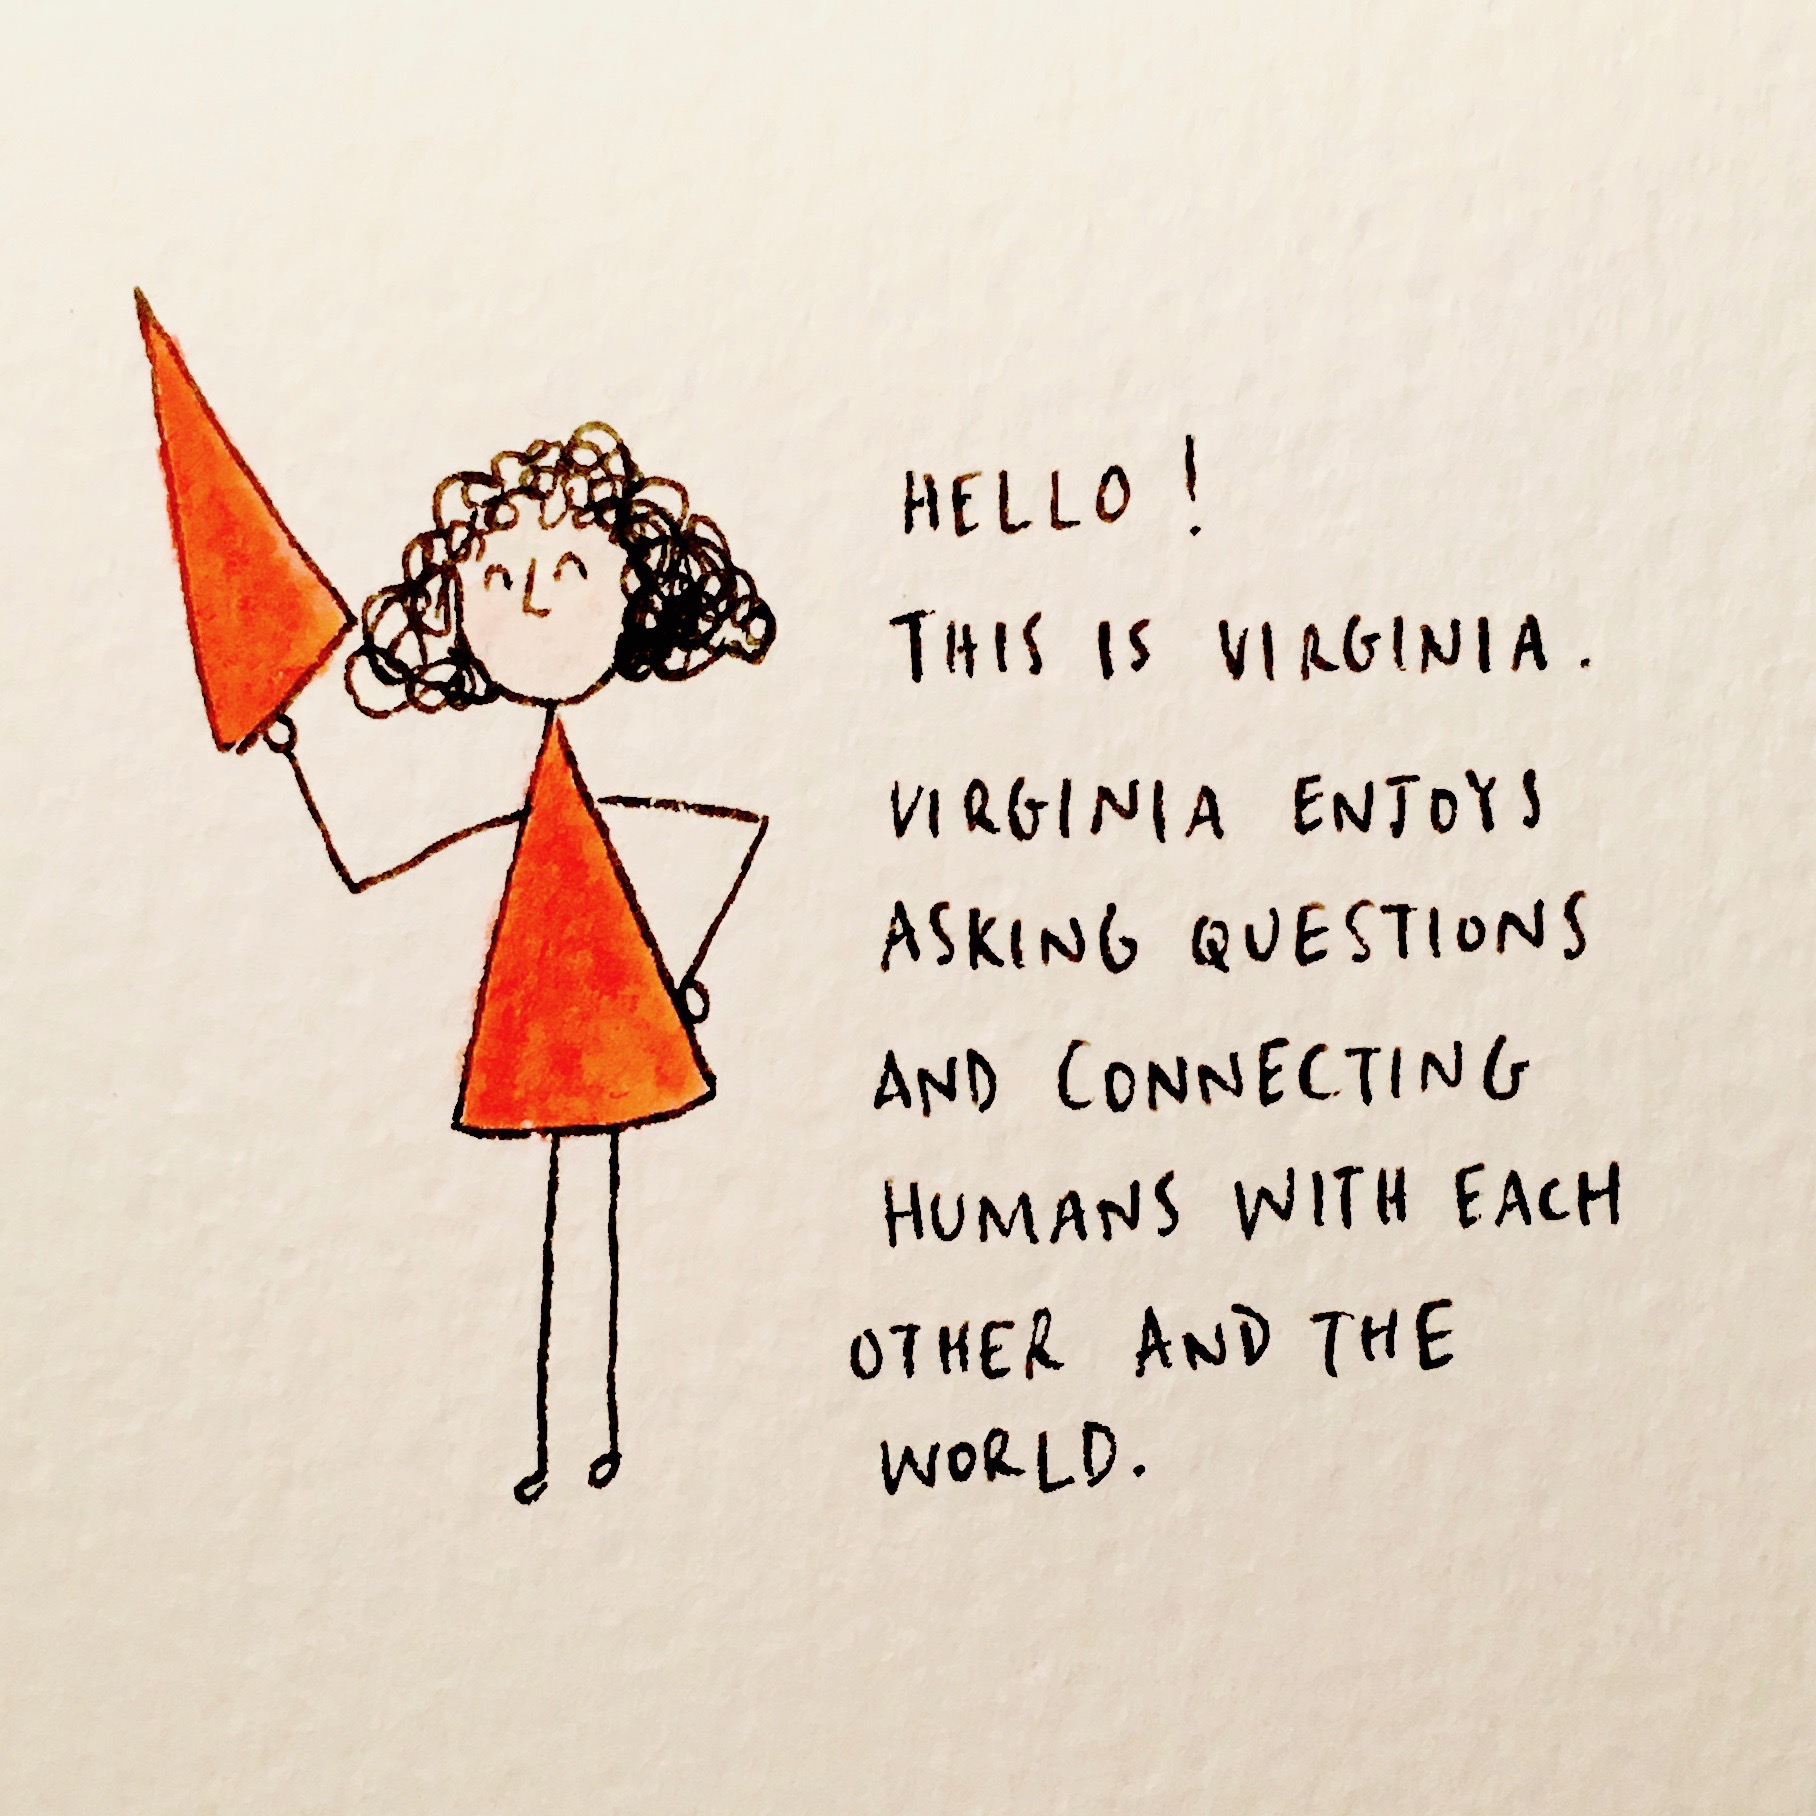 HELLO !
THIS IS VIRGINIA.
VIRGINIA ENJOYS
ASKING QUESTIONS
AND CONNECTING
HUMANS WITH EACH
OTHER AND THE
WORLD.